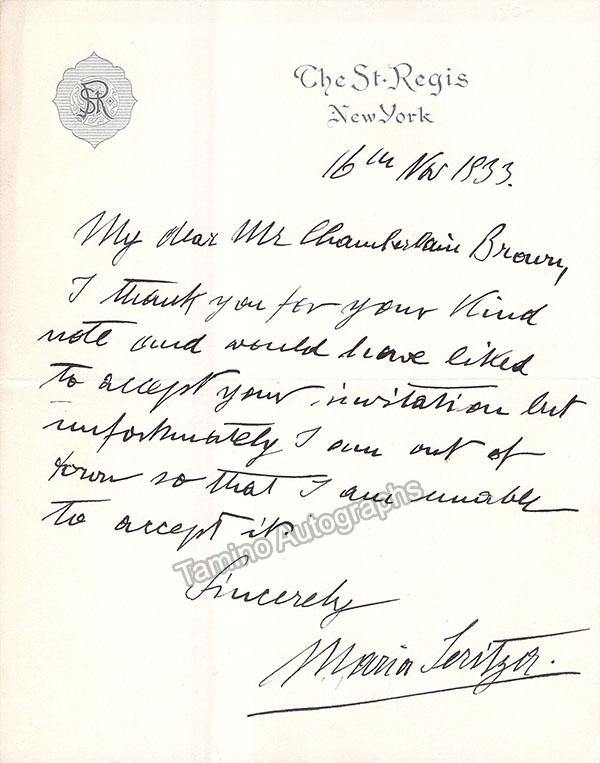 150-
SR
The St. Regis
New York
16th Nov 1933.
My dear Mr Chamberlain Brown,
I thank you for your kind
note and would have liked
to accept your invitation but
unfortunately I am out of
town so that I am unable
to accept it.
Tamino Autographs
Sincerely
Maria Jeritza.